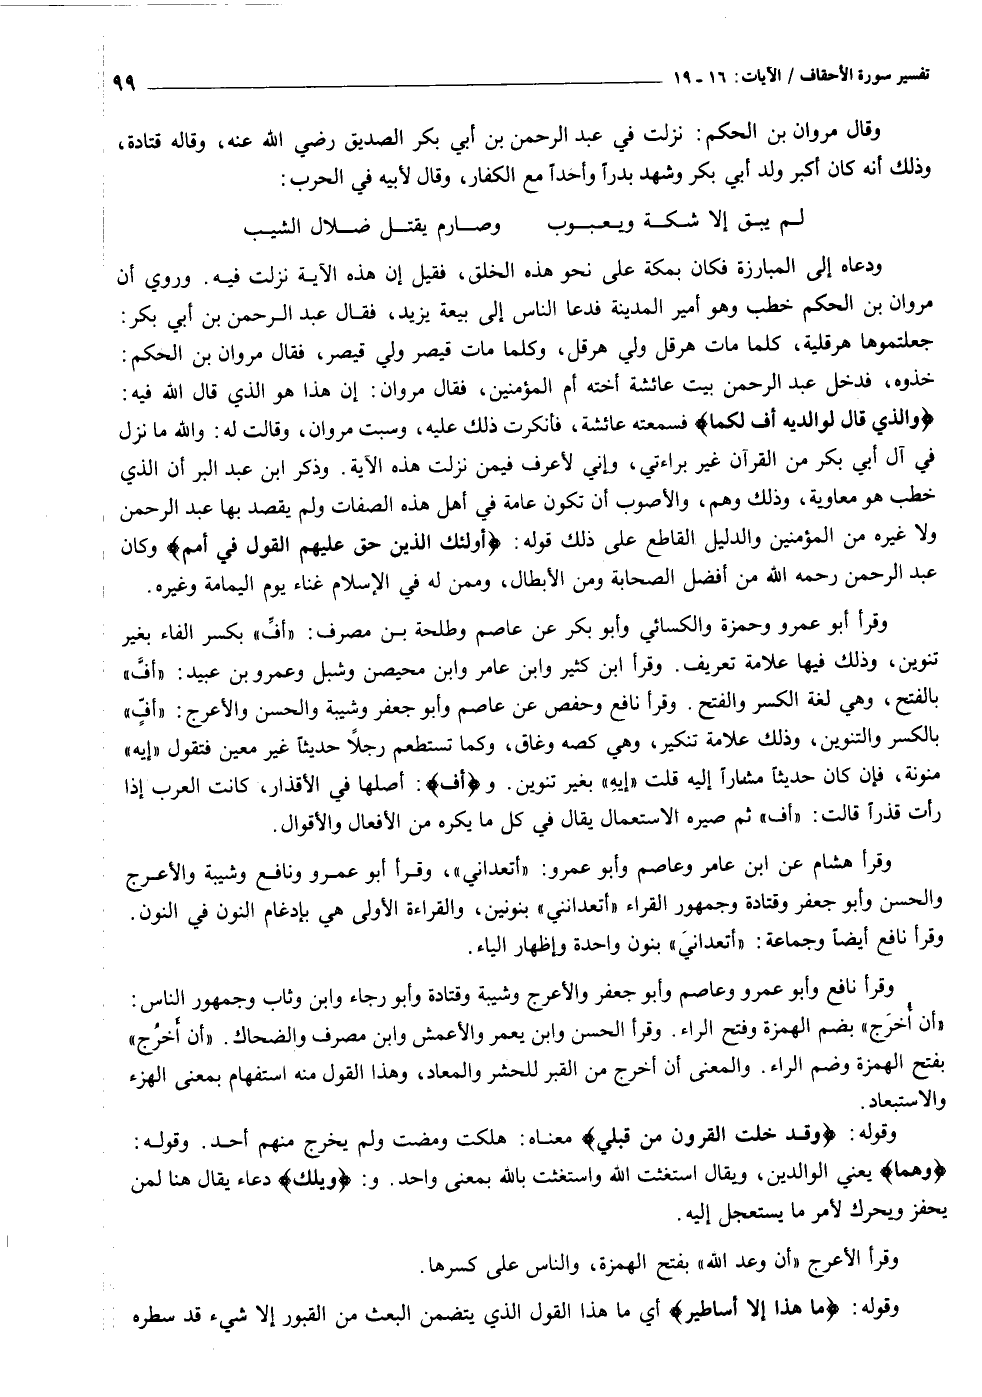 تفسير سورة الأحقاف / الآيات: ١٦ - ١٩ ٩٩
وقال مروان بن الحكم: نزلت في عبد الرحمن بن أبي بكر الصديق رضي الله عنه، وقاله قتادة،
وذلك أنه كان أكبر ولد أبي بكر وشهد بدراً وأحداً مع الكفار، وقال لأبيه في الحرب:
لم يبق إلا شكة ويعبوب وصارم يقتل ضلال الشيب
ودعاه إلى المبارزة فكان بمكة على نحو هذه الخلق، فقيل إن هذه الآية نزلت فيه. وروي أن
مروان بن الحكم خطب وهو أمير المدينة فدعا الناس إلى بيعة يزيد، فقال عبد الرحمن بن أبي بكر:
جعلتموها هرقلية، كلما مات هرقل ولي هرقل، وكلما مات قيصر ولي قيصر، فقال مروان بن الحكم:
خذوه، فدخل عبد الرحمن بيت عائشة أخته أم المؤمنين، فقال مروان: إن هذا هو الذي قال الله فيه:
﴿والذي قال لوالديه أف لكما﴾ فسمعته عائشة، فأنكرت ذلك عليه، وسبت مروان، وقالت له: والله ما نزل
في آل أبي بكر من القرآن غير براءتي، وإني لأعرف فيمن نزلت هذه الآية. وذكر ابن عبد البر أن الذي
خطب هو معاوية، وذلك وهم، والأصوب أن تكون عامة في أهل هذه الصفات ولم يقصد بها عبد الرحمن
ولا غيره من المؤمنين والدليل القاطع على ذلك قوله: ﴿أولئك الذين حق عليهم القول في أمم﴾ وكان
عبد الرحمن رحمه الله من أفضل الصحابة ومن الأبطال، وممن له في الإسلام غناء يوم اليمامة وغيره.
وقرأ أبو عمرو وحمزة والكسائي وأبو بكر عن عاصم وطلحة بن مصرف: «أفِّ» بكسر الفاء بغير
تنوين، وذلك فيها علامة تعريف. وقرأ ابن كثير وابن عامر وابن محيصن وشبل وعمرو بن عبيد: «أفَّ»
بالفتح، وهي لغة الكسر والفتح. وقرأ نافع وحفص عن عاصم وأبو جعفر وشيبة والحسن والأعرج: «أفٍّ»
بالكسر والتنوين، وذلك علامة تنكير، وهي كصه وغاق، وكما تستطعم رجلاً حديثاً غير معين فتقول «إيه»
منونة، فإن كان حديثاً مشاراً إليه قلت «إيهِ» بغير تنوين. و﴿أف﴾: أصلها في الأقذار، كانت العرب إذا
رأت قذراً قالت: «أف» ثم صيره الاستعمال يقال في كل ما يكره من الأفعال والأقوال.
وقرأ هشام عن ابن عامر وعاصم وأبو عمرو: «أتعداني»، وقرأ أبو عمرو ونافع وشيبة والأعرج
والحسن وأبو جعفر وقتادة وجمهور القراء «أتعدانني» بنونين، والقراءة الأولى هي بإدغام النون في النون.
وقرأ نافع أيضاً وجماعة: «أتعدانيَ» بنون واحدة وإظهار الياء.
وقرأ نافع وأبو عمرو وعاصم وأبو جعفر والأعرج وشيبة وقتادة وأبو رجاء وابن وثاب وجمهور الناس:
«أن أُخرَج» بضم الهمزة وفتح الراء. وقرأ الحسن وابن يعمر والأعمش وابن مصرف والضحاك. «أن أَخرُج»
بفتح الهمزة وضم الراء. والمعنى أن أخرج من القبر للحشر والمعاد، وهذا القول منه استفهام بمعنى الهزء
والاستبعاد.
وقوله: ﴿وقد خلت القرون من قبلي﴾ معناه: هلكت ومضت ولم يخرج منهم أحد. وقوله:
﴿وهما﴾ يعني الوالدين، ويقال استغثت الله واستغثت بالله بمعنى واحد. و: ﴿ويلك﴾ دعاء يقال هنا لمن
يحفز ويحرك لأمر ما يستعجل إليه.
وقرأ الأعرج «أن وعد الله» بفتح الهمزة، والناس على كسرها.
وقوله: ﴿ما هذا إلا أساطير﴾ أي ما هذا القول الذي يتضمن البعث من القبور إلا شيء قد سطره